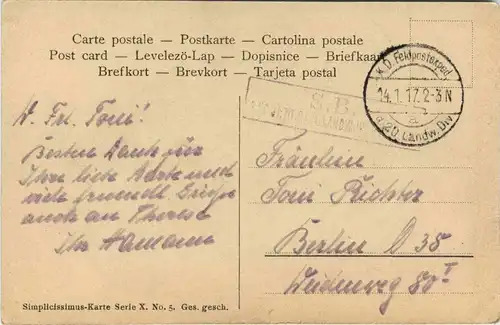 Carte postale — Postkarte — Cartolina postale
Post card — Levelező-Lap — Dopisnice — Briefkaart
Brefkort — Brevkort — Tarjeta postal
K.D. Feldpostexped.
14.1.17. 2-3 N
a
d. 20. Landw. Div.
S.B.
W. Frl. Toni!
Besten Dank für
Ihre liebe Karte und
viele freundl. Grüße
auch an Therese
Ihr Hamann
Fräulein
Toni Richter
Berlin O 35
Weidenweg 80 I
Simplicissimus-Karte Serie X. No. 5. Ges. gesch.